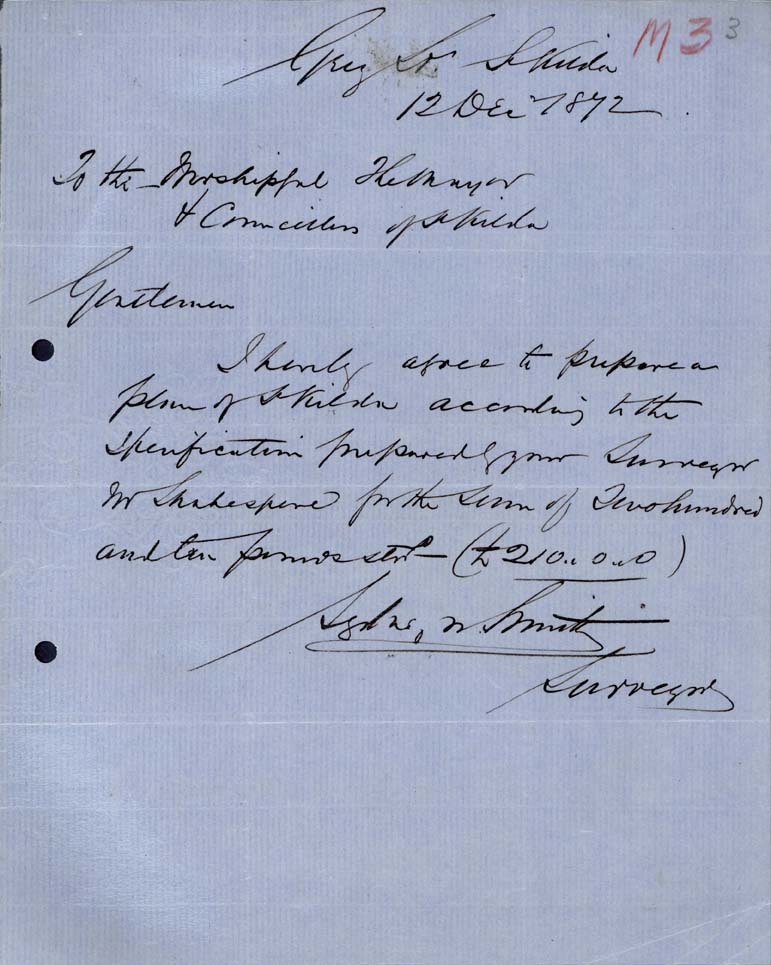 M 3 3
Grey St St Kilda
12 Dec 1872
To the Worshipful The Mayor
& Councillors of St Kilda
Gentlemen
I hereby agree to prepare a
plan of St Kilda according to the
Specification prepared by your Surveyor
Mr Shakespere for the Sum of Two hundred
and ten pounds stg (£210..0..0)
Sydney W. Smith
Surveyor